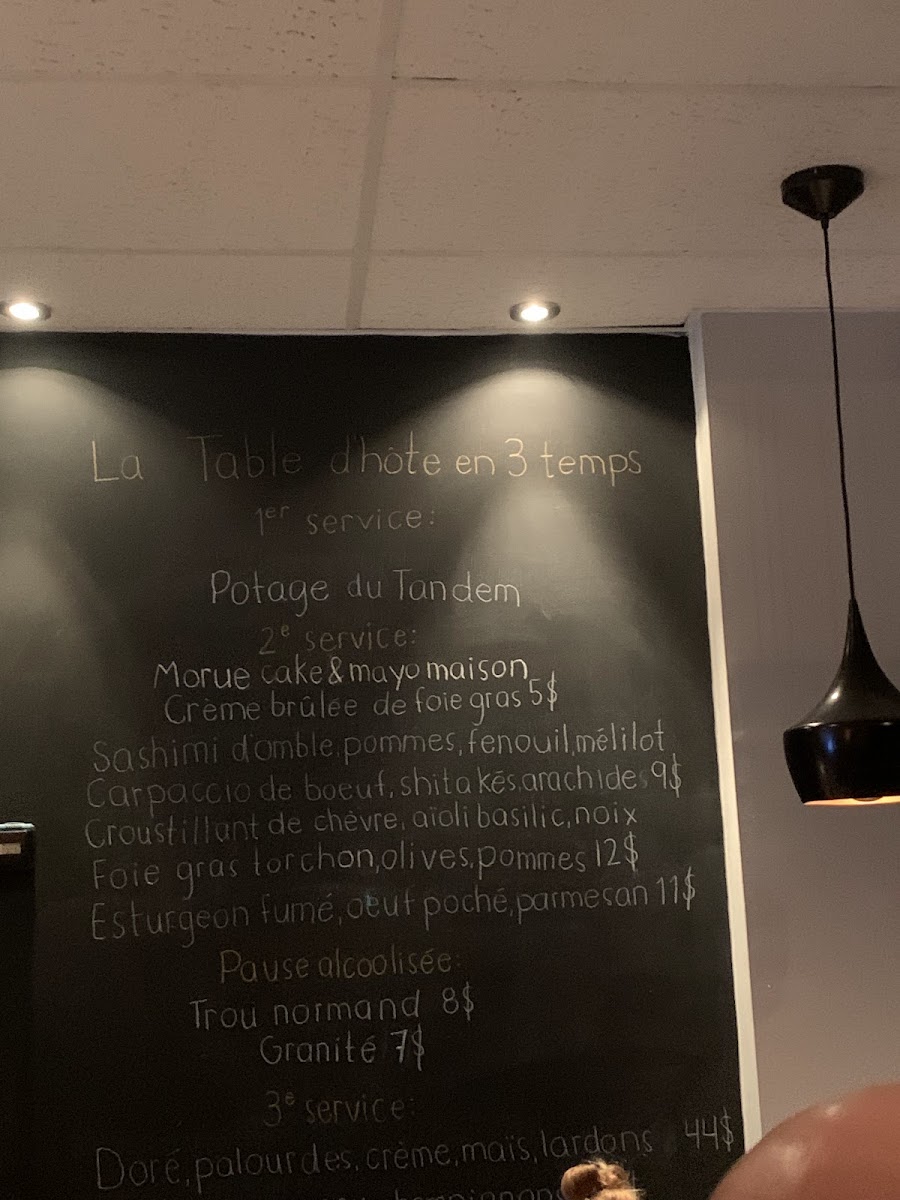 La Table d'hôte en 3 temps
1er service:
Potage du Tandem
2e service:
Morue cake & mayo maison
Crème brûlée de foie gras 5$
Sashimi d'omble, pommes, fenouil, mélilot
Carpaccio de boeuf, shitakés, arachides 9$
Croustillant de chèvre, aïoli basilic, noix
Foie gras torchon, olives, pommes 12$
Esturgeon fumé, oeuf poché, parmesan 11$
Pause alcoolisée:
Trou normand 8$
Granité 7$
3e service:
Doré, palourdes, crème, maïs, lardons 44$